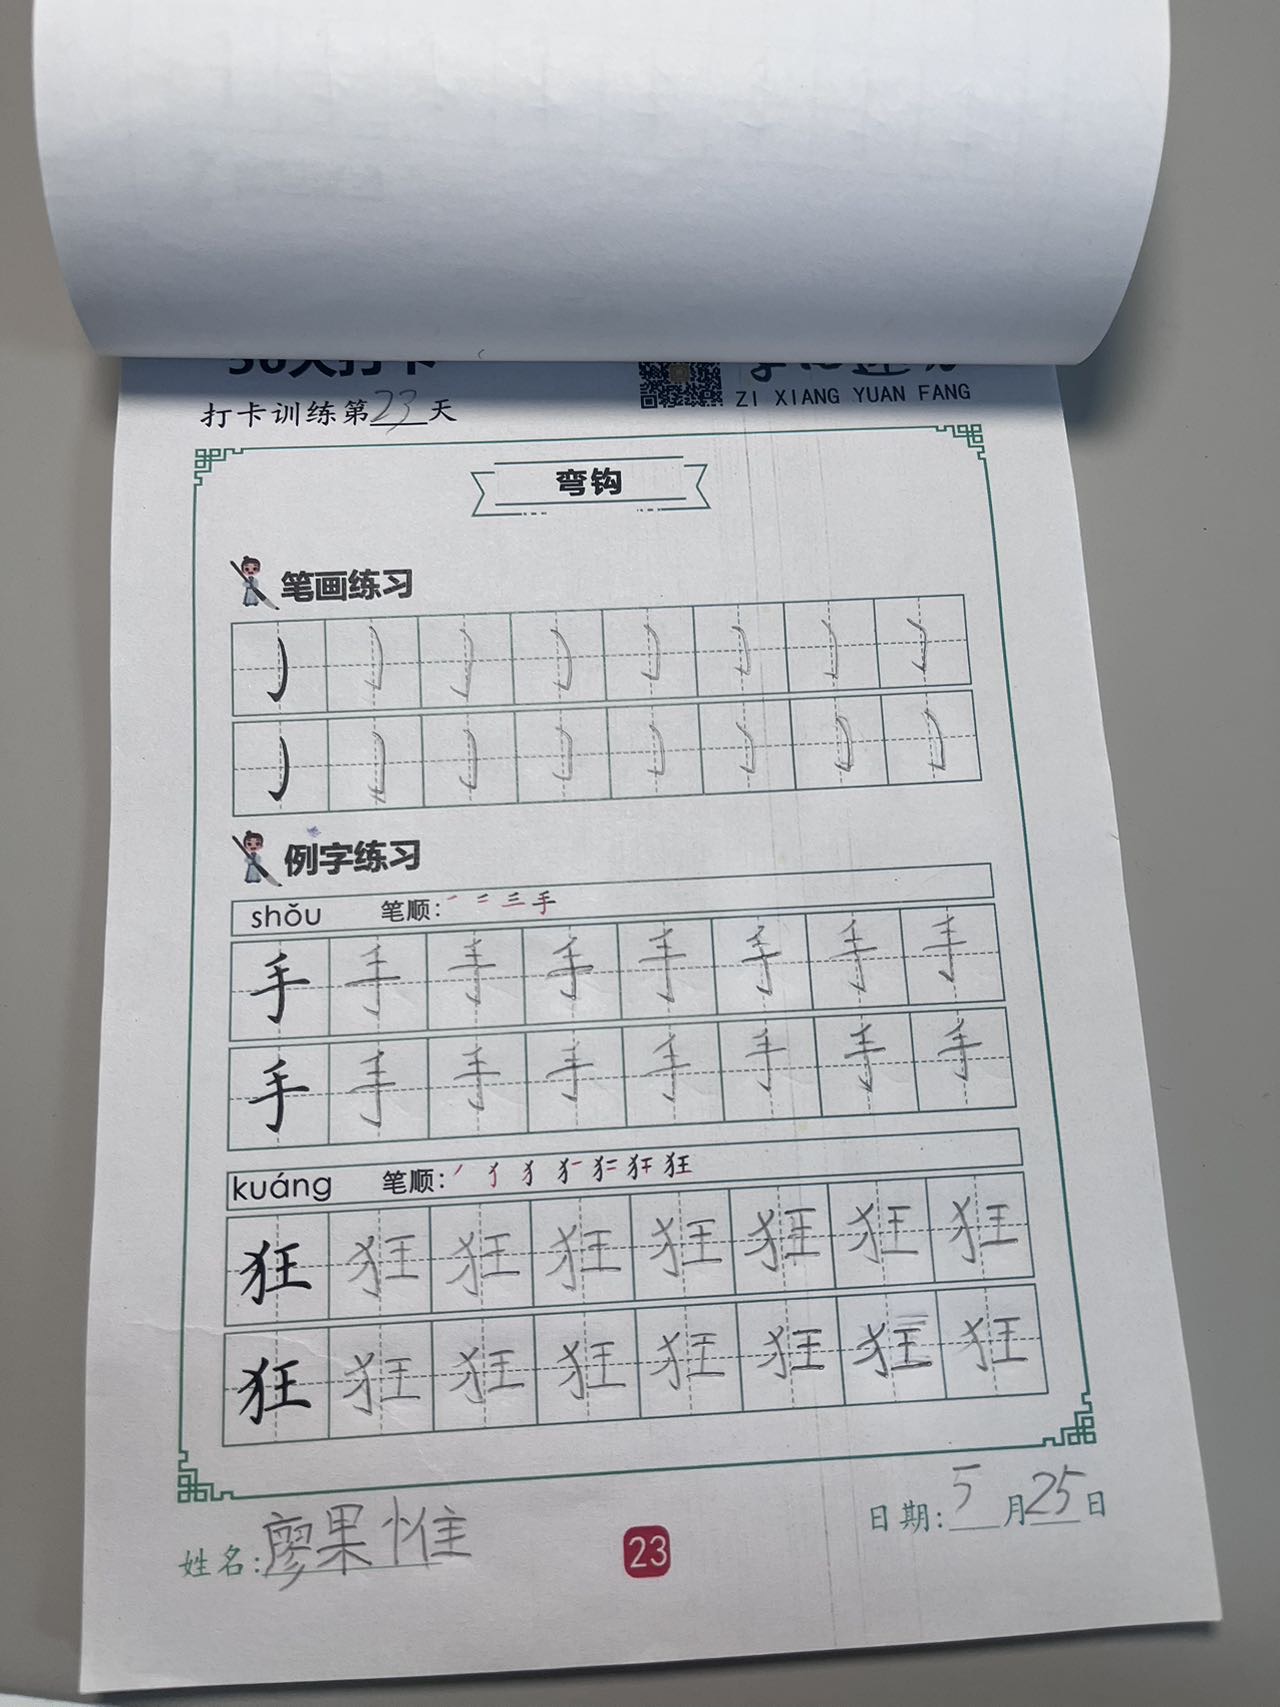 打卡训练第23天
ZI XIANG YUAN FANG
弯钩
笔画练习
例字练习
shǒu 笔顺: 手
手 手 手 手 手 手 手 手
手 手 手 手 手 手 手 手
kuáng 笔顺: 狂
狂 狂 狂 狂 狂 狂 狂 狂
狂 狂 狂 狂 狂 狂 狂 狂
姓名:廖果惟
23
日期:5月25日